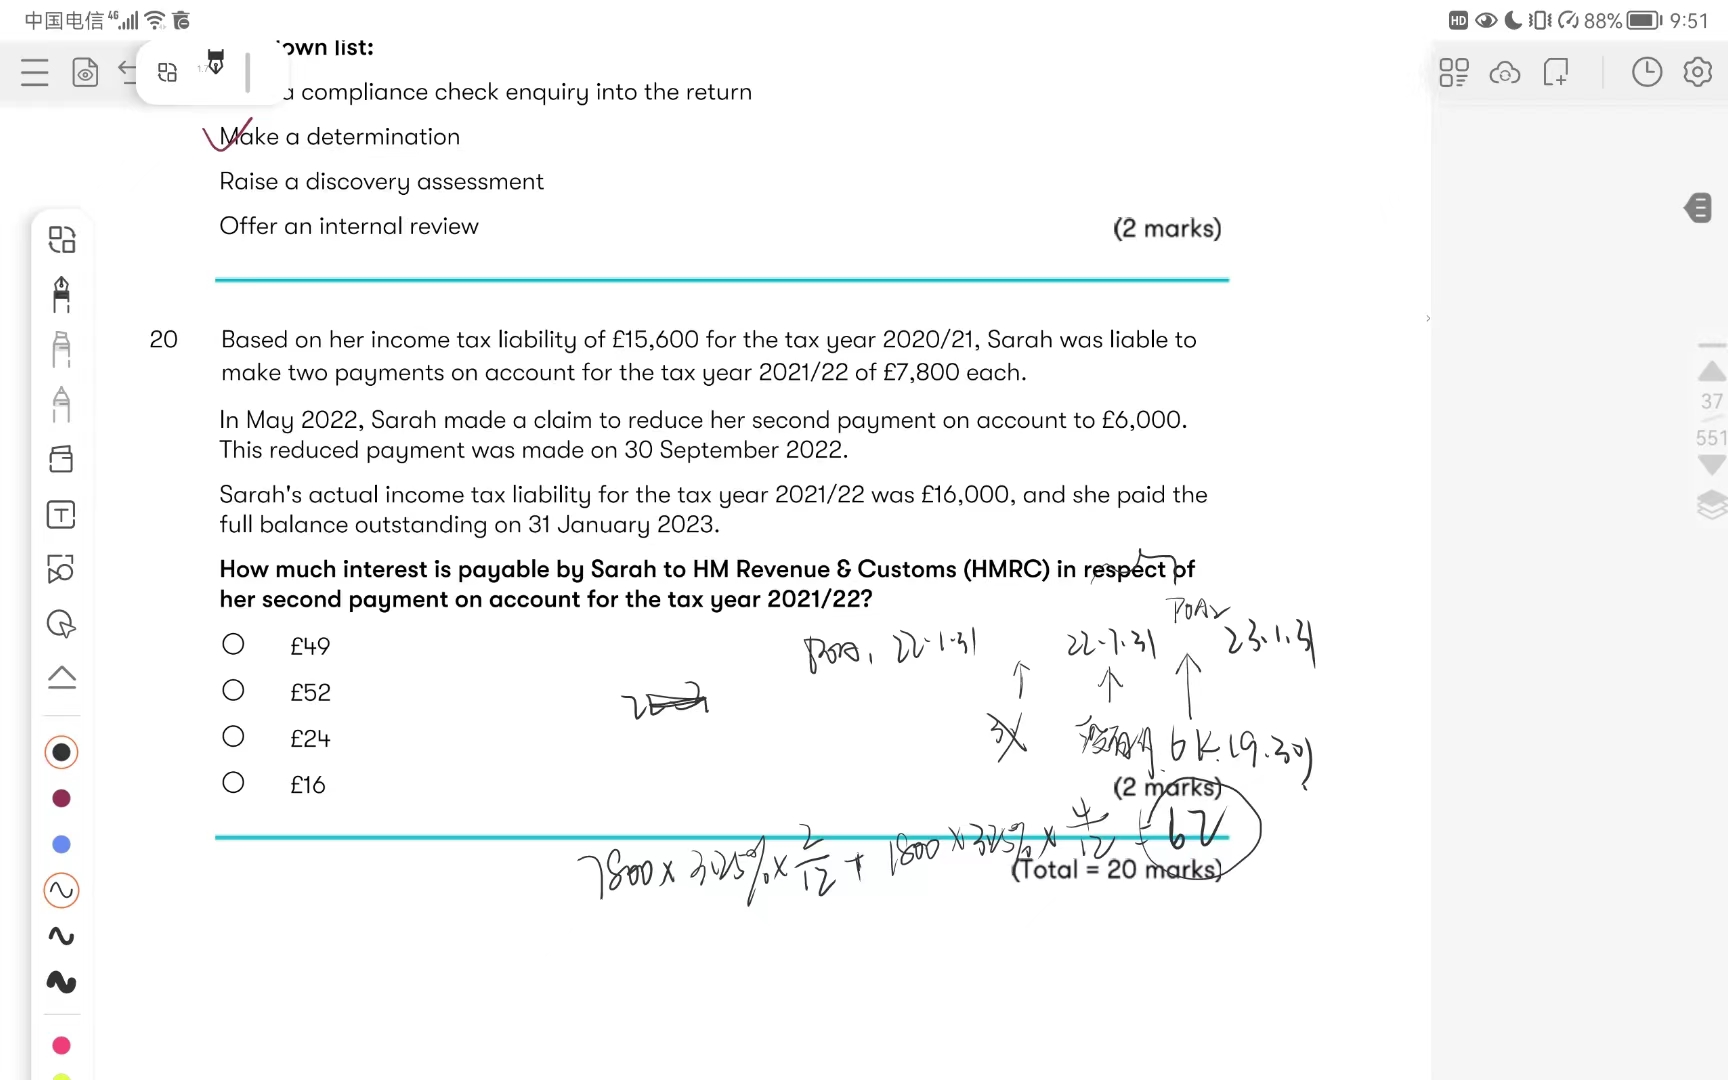 中国电信 4G HD 88% 9:51
own list:
a compliance check enquiry into the return
Make a determination
Raise a discovery assessment
Offer an internal review
(2 marks)
20
Based on her income tax liability of £15,600 for the tax year 2020/21, Sarah was liable to
make two payments on account for the tax year 2021/22 of £7,800 each.
In May 2022, Sarah made a claim to reduce her second payment on account to £6,000.
This reduced payment was made on 30 September 2022.
Sarah's actual income tax liability for the tax year 2021/22 was £16,000, and she paid the
full balance outstanding on 31 January 2023.
How much interest is payable by Sarah to HM Revenue & Customs (HMRC) in respect of
her second payment on account for the tax year 2021/22?
POA2
£49
22.1.31 22.7.31 23.1.31
£52
£24
6k (9.30)
£16
(2 marks)
7800 × 3.25% × 2/12 + 1800 × 3.25% × 4/12 = 62
(Total = 20 marks)
37
551
T